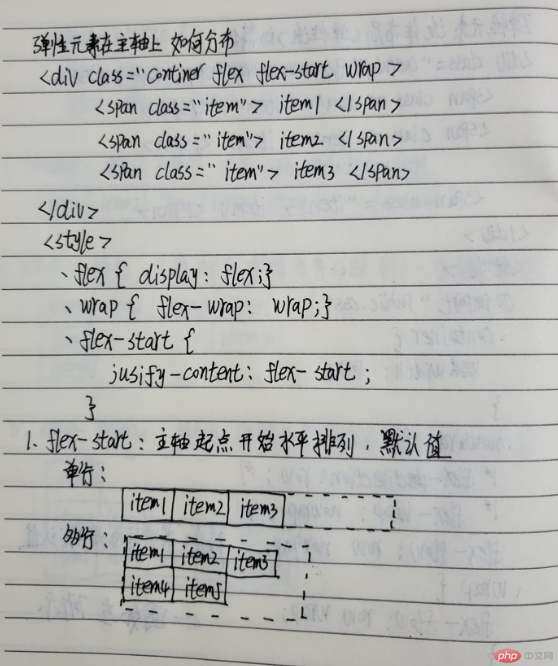 弹性元素在主轴上 如何分布
<div class="continer flex flex-start wrap>
<span class="item"> item1 </span>
<span class="item"> item2 </span>
<span class="item"> item3 </span>
</div>
<style>
.flex { display: flex;}
.wrap { flex-wrap: wrap;}
.flex-start {
jusify-content: flex-start;
}
1. flex-start: 主轴起点开始水平排列,默认值
单行:
item1 item2 item3
多行:
item1 item2 item3
item4 item5
php 中文网